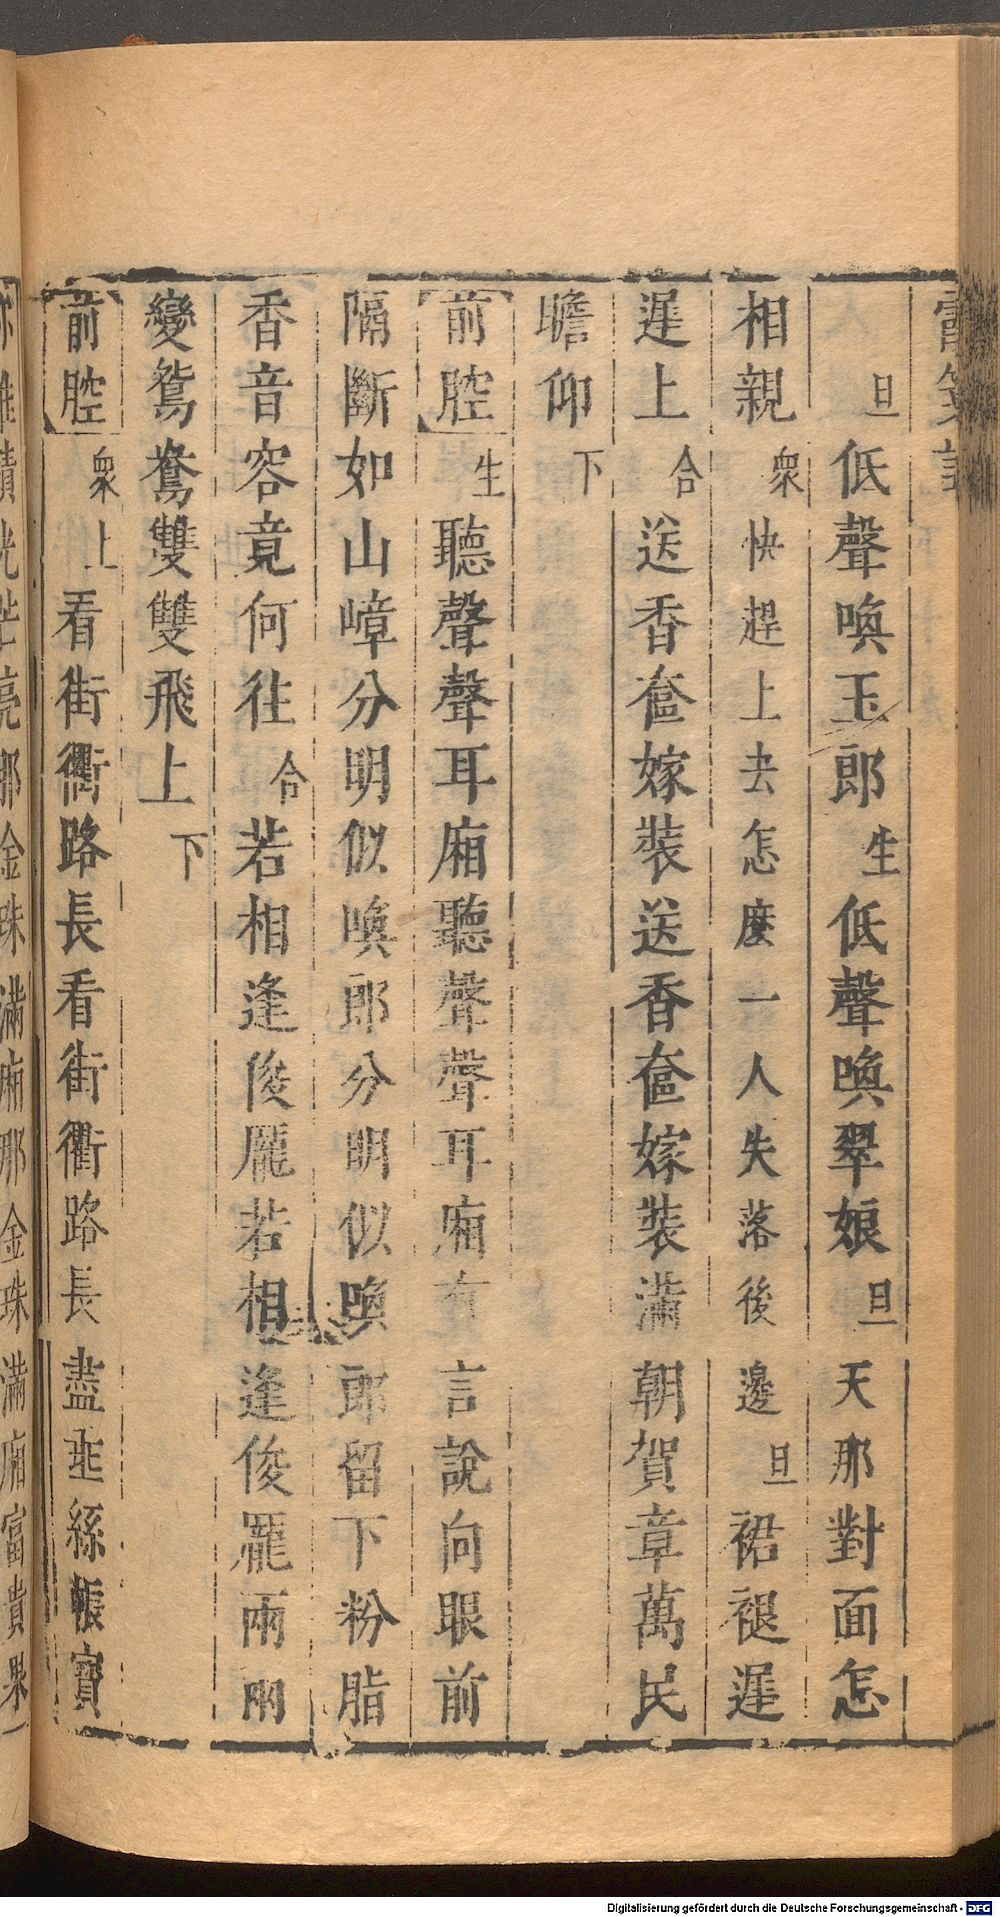 旦低聲喚玉郎生低聲喚翠娘旦天那對面怎
相親衆快趕上去怎麼一人失落後邊旦裙褪遲
遲上合送香奩嫁裝送香奩嫁裝滿朝賀章萬民
瞻仰下
前腔生聽聲聲耳廂聽聲聲耳廂有言說向眼前
隔斷如山嶂分明似喚郎分明似喚郎留下粉脂
香音容竟何往合若相逢俊龐若相逢俊龐兩兩
變鴛鴦雙雙飛上下
前腔衆上看街衢路長看街衢路長盡圵絲帳寶
金珠滿廂那金珠滿廂富貴
Digitalisierung gefördert durch die Deutsche Forschungsgemeinschaft - DFG